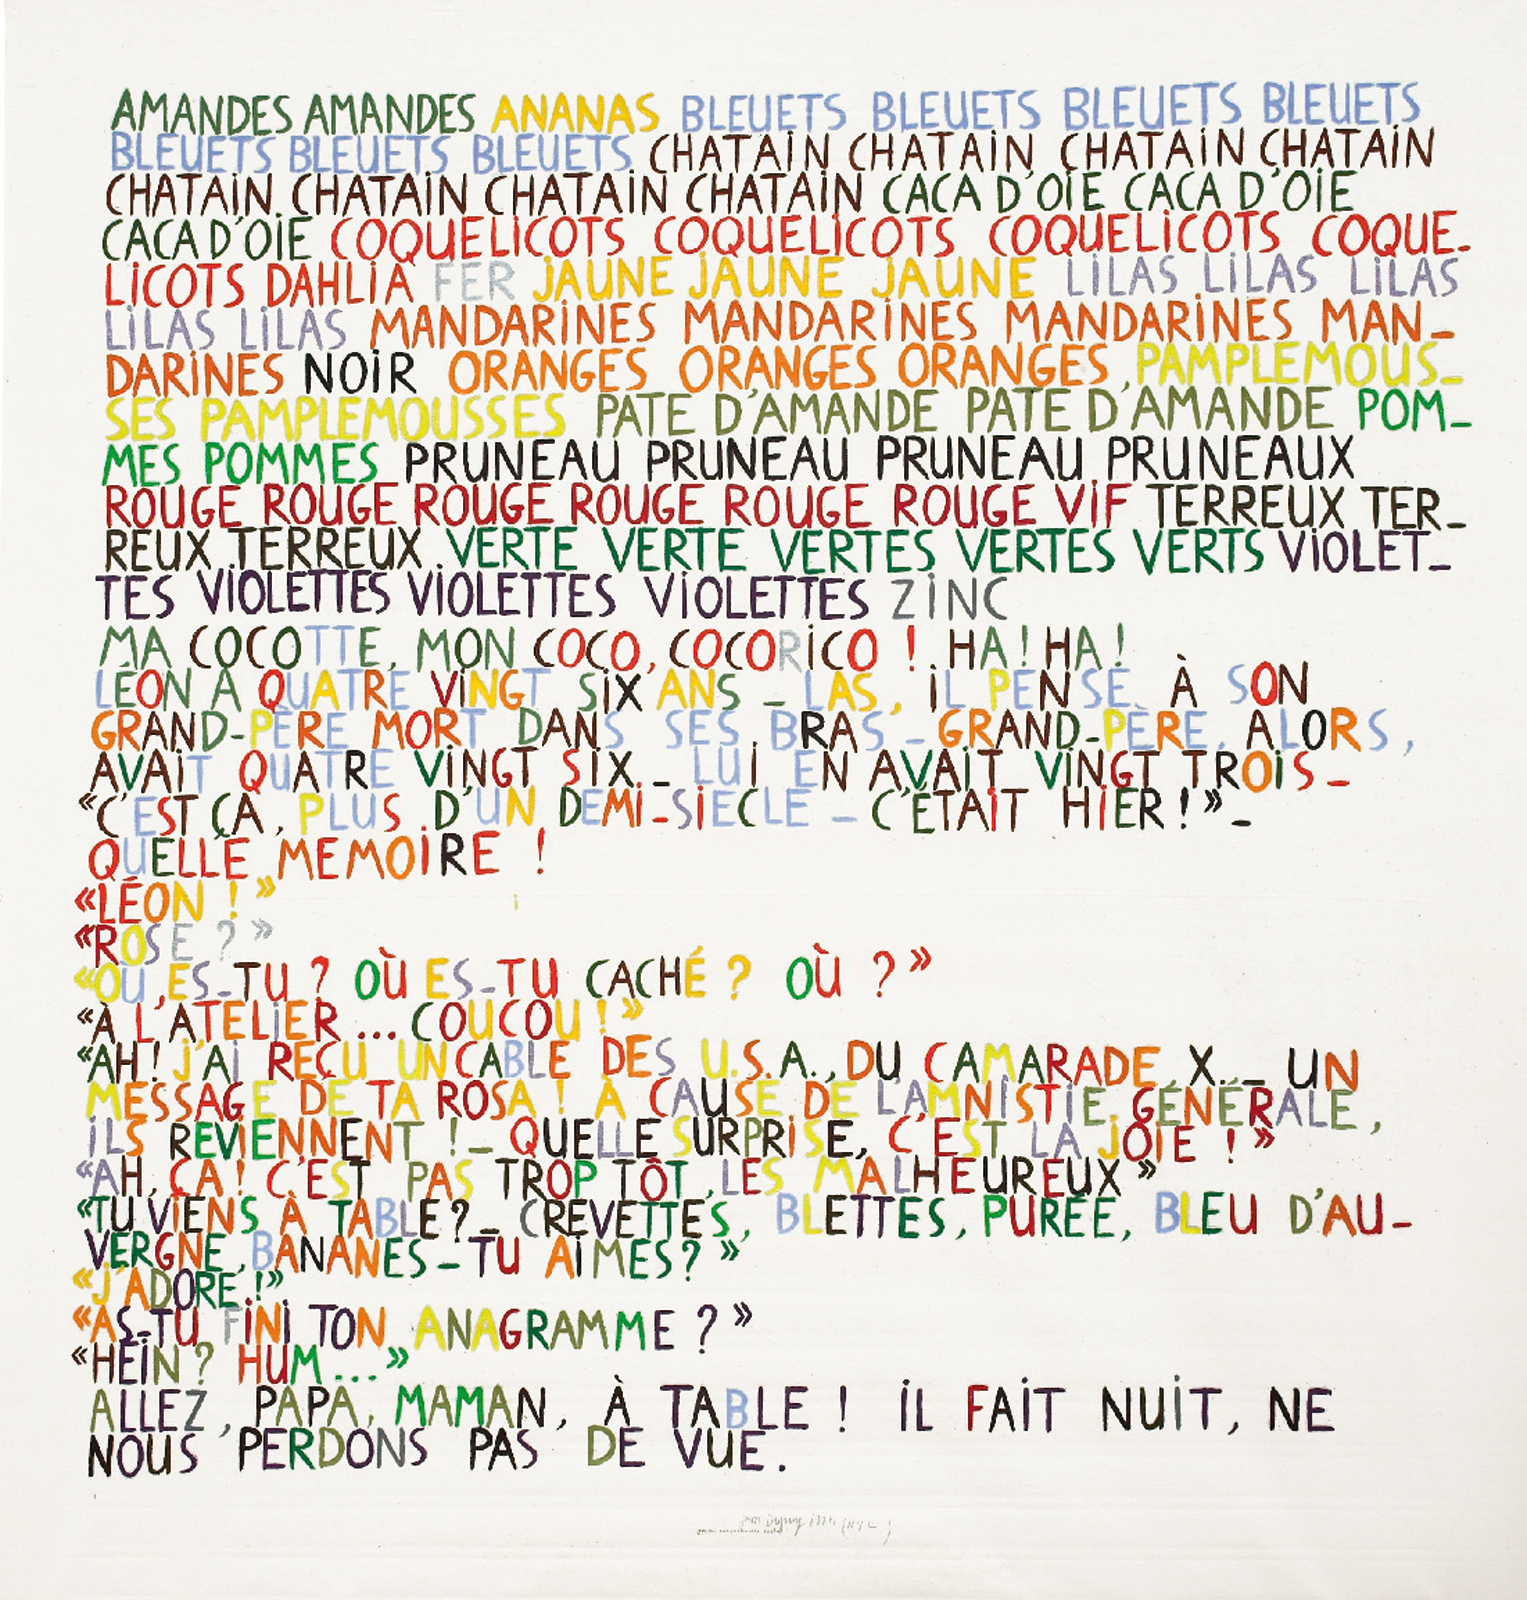 AMANDES AMANDES ANANAS BLEUETS BLEUETS BLEUETS BLEUETS
BLEUETS BLEUETS BLEUETS CHATAIN CHATAIN CHATAIN CHATAIN
CHATAIN CHATAIN CHATAIN CHATAIN CACA D'OIE CACA D'OIE
CACA D'OIE COQUELICOTS COQUELICOTS COQUELICOTS COQUE-
LICOTS DAHLIA FER JAUNE JAUNE JAUNE LILAS LILAS LILAS
LILAS LILAS MANDARINES MANDARINES MANDARINES MAN-
DARINES NOIR ORANGES ORANGES ORANGES PAMPLEMOUS-
SES PAMPLEMOUSSES PATE D'AMANDE PATE D'AMANDE POM-
MES POMMES PRUNEAU PRUNEAU PRUNEAU PRUNEAUX
ROUGE ROUGE ROUGE ROUGE ROUGE ROUGE VIF TERREUX TER-
REUX TERREUX VERTE VERTE VERTES VERTES VERTS VIOLET-
TES VIOLETTES VIOLETTES VIOLETTES ZINC
MA COCOTTE, MON COCO, COCORICO ! HA! HA!
LÉON A QUATRE VINGT SIX ANS - LAS, IL PENSE À SON
GRAND-PÈRE MORT DANS SES BRAS - GRAND-PÈRE, ALORS,
AVAIT QUATRE VINGT SIX - LUI EN AVAIT VINGT TROIS -
“C'EST ÇA, PLUS D'UN DEMI-SIECLE - C'ÉTAIT HIER !” -
QUELLE MEMOIRE !
«LÉON ! »
«ROSE ? »
«OÙ ES-TU ? OÙ ES-TU CACHÉ ? OÙ ? »
«À L'ATELIER ... COUCOU ! »
«AH ! J'AI REÇU UN CABLE DES U.S.A., DU CAMARADE X. - UN
MESSAGE DE TA ROSA ! À CAUSE DE L'AMNISTIE GÉNÉRALE,
ILS REVIENNENT ! - QUELLE SURPRISE, C'EST LA JOIE ! »
«AH, ÇA ! C'EST PAS TROP TÔT, LES MALHEUREUX »
«TU VIENS À TABLE ? - CREVETTES, BLETTES, PURÉE, BLEU D'AU-
VERGNE, BANANES - TU AIMES ? »
«J'ADORE !»
«AS-TU FINI TON ANAGRAMME ? »
«HEIN ? HUM ... »
ALLEZ, PAPA, MAMAN, À TABLE ! IL FAIT NUIT, NE
NOUS PERDONS PAS DE VUE.